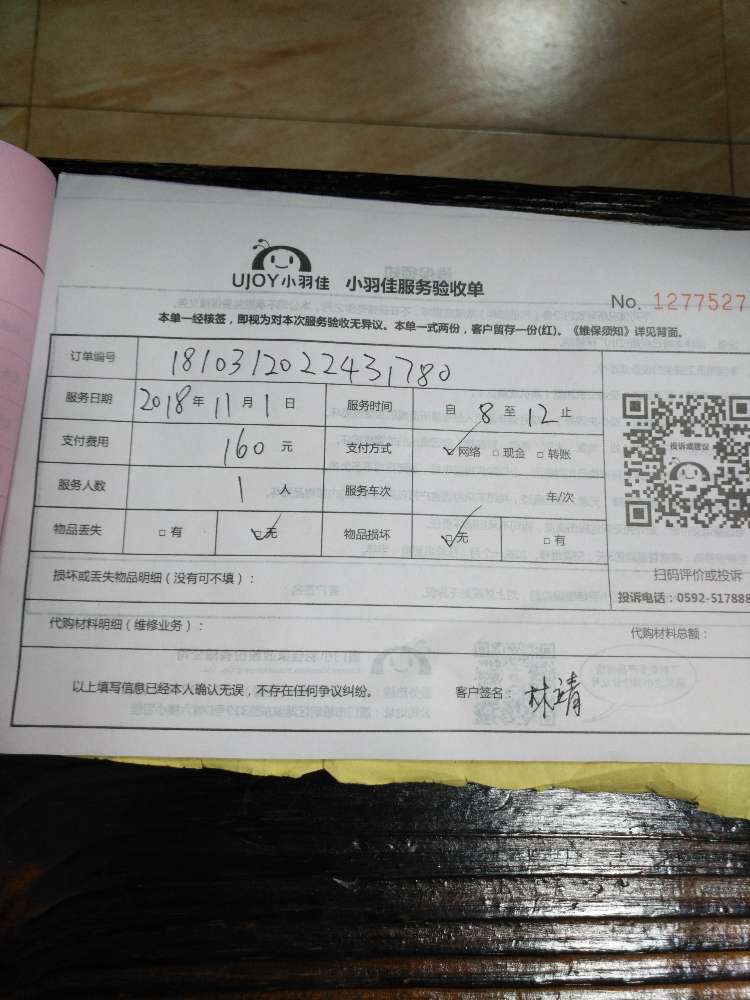 UJOY小羽佳 小羽佳服务验收单
No. 1277527
本单一经核签，即视为对本次服务验收无异议。本单一式两份，客户留存一份(红)。《维保须知》详见背面。
订单编号 1810312022431780
服务日期 2018年 11月 1日 服务时间 自 8 至 12 止
支付费用 160 元 支付方式 ☑网络 □现金 □转账
投诉或建议
服务人数 1 人 服务车次 车/次
物品丢失 □有 ☑无 物品损坏 ☑无 □有
扫码评价或投诉
损坏或丢失物品明细（没有可不填）：
投诉电话：0592-517888
代购材料明细（维修业务）： 代购材料总额：
以上填写信息已经本人确认无误，不存在任何争议纠纷。 客户签名： 林靖